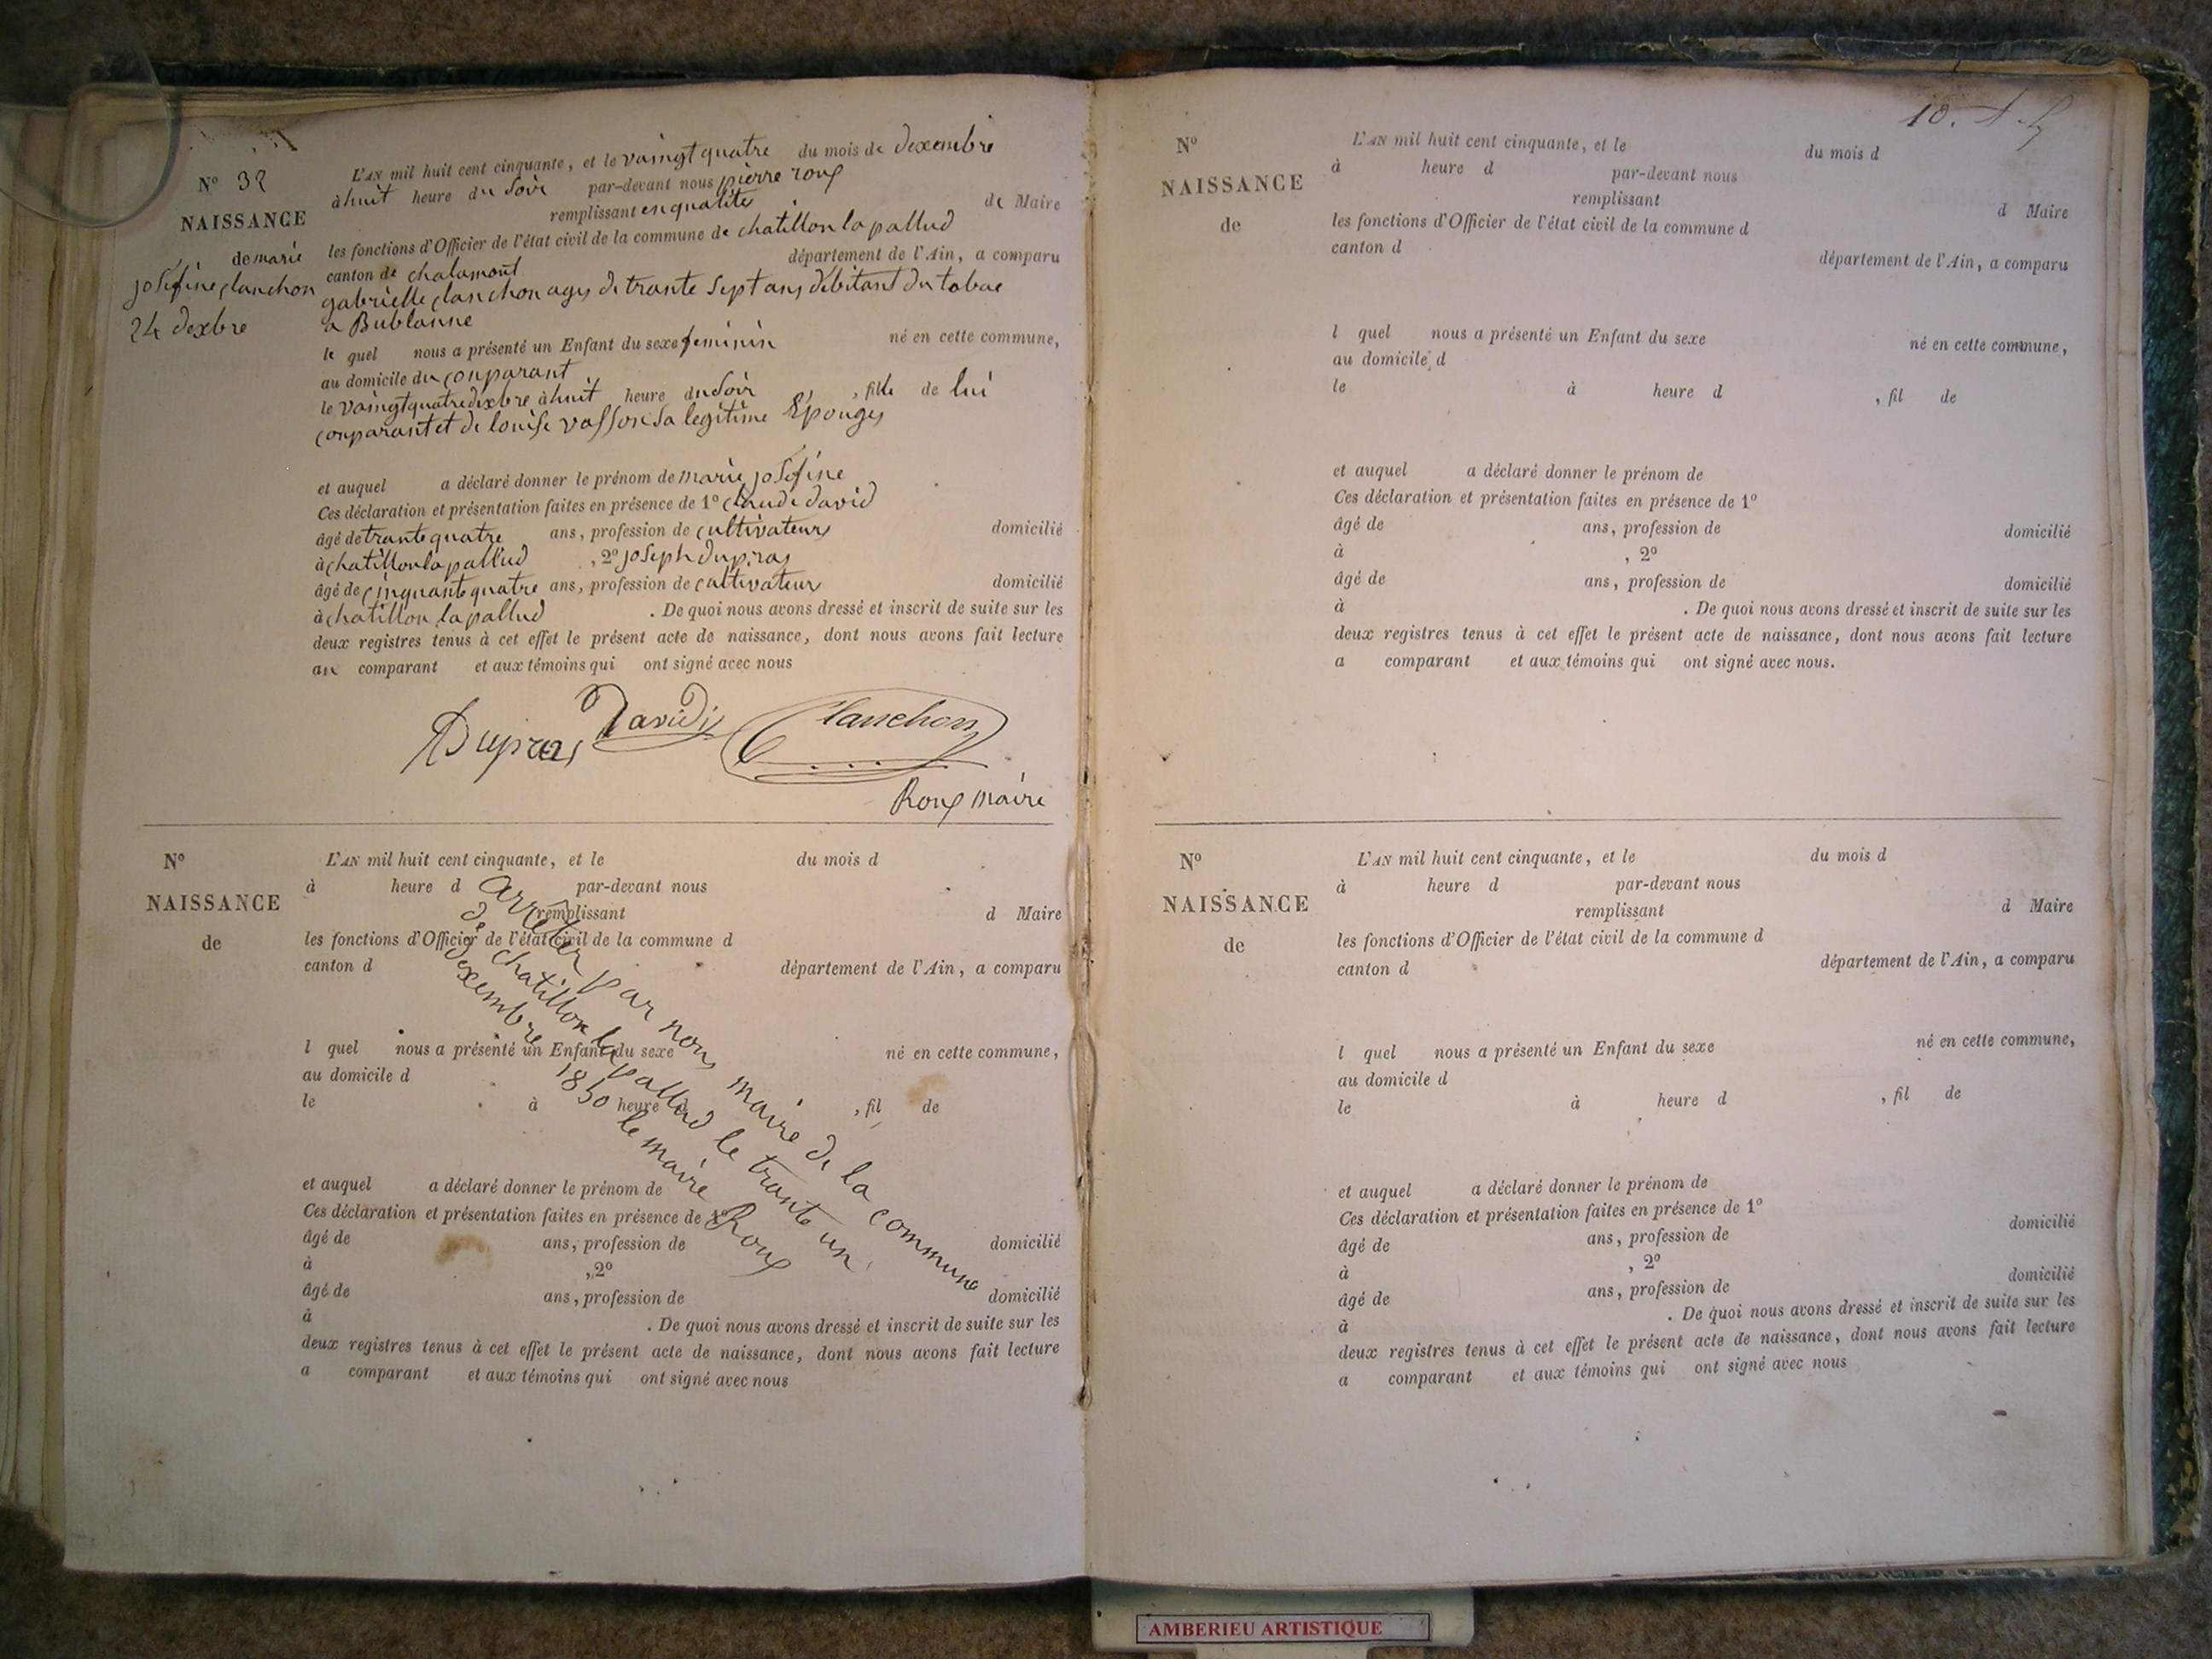 N° 32
NAISSANCE
de marie
josefine clanchon
24 dexbre
L'AN mil huit cent cinquante, et le vaingt quatre du mois de dexembre
à huit heure du soir par-devant nous pierre roux
remplissant en qualité de Maire
les fonctions d'Officier de l'état civil de la commune de chatillon la pallud
canton de chalamont département de l'Ain, a comparu
gabrielle clanchon ages de trante sept ans débitant du tabac
a Bublanne
le quel nous a présenté un Enfant du sexe feminin né en cette commune,
au domicile du conparant
le vaingt quatre dexbre à huit heure du soir, fille de lui
conparant et de louise vasson sa legitime Epouges
et auquel a déclaré donner le prénom de marie josefine
Ces déclaration et présentation faites en présence de 1° claude david
âgé de trante quatre ans, profession de cultivateurs domicilié
à chatillon la pallud, 2° joseph dupras
âgé de cinquante quatre ans, profession de cultivateur domicilié
à chatillon la pallud. De quoi nous avons dressé et inscrit de suite sur les
deux registres tenus à cet effet le présent acte de naissance, dont nous avons fait lecture
au comparant et aux témoins qui ont signé avec nous
Dupras David Clanchon
Roux maire
N°
NAISSANCE
de
L'AN mil huit cent cinquante, et le du mois d
à heure d par-devant nous
remplissant d Maire
les fonctions d'Officier de l'état civil de la commune d
canton d département de l'Ain, a comparu
l quel nous a présenté un Enfant du sexe né en cette commune,
au domicile d
le à heure d, fil de
et auquel a déclaré donner le prénom de
Ces déclaration et présentation faites en présence de 1°
âgé de ans, profession de domicilié
à, 2°
âgé de ans, profession de domicilié
à. De quoi nous avons dressé et inscrit de suite sur les
deux registres tenus à cet effet le présent acte de naissance, dont nous avons fait lecture
a comparant et aux témoins qui ont signé avec nous
arrêter par nous maire de la commune
de chatillon la pallud le trante un
dexembre 1850 le maire Roux
10.
N°
NAISSANCE
de
L'AN mil huit cent cinquante, et le du mois d
à heure d par-devant nous
remplissant d Maire
les fonctions d'Officier de l'état civil de la commune d
canton d département de l'Ain, a comparu
l quel nous a présenté un Enfant du sexe né en cette commune,
au domicile d
le à heure d, fil de
et auquel a déclaré donner le prénom de
Ces déclaration et présentation faites en présence de 1°
âgé de ans, profession de domicilié
à, 2°
âgé de ans, profession de domicilié
à. De quoi nous avons dressé et inscrit de suite sur les
deux registres tenus à cet effet le présent acte de naissance, dont nous avons fait lecture
a comparant et aux témoins qui ont signé avec nous.
N°
NAISSANCE
de
L'AN mil huit cent cinquante, et le du mois d
à heure d par-devant nous
remplissant d Maire
les fonctions d'Officier de l'état civil de la commune d
canton d département de l'Ain, a comparu
l quel nous a présenté un Enfant du sexe né en cette commune,
au domicile d
le à heure d, fil de
et auquel a déclaré donner le prénom de
Ces déclaration et présentation faites en présence de 1°
âgé de ans, profession de domicilié
à, 2°
âgé de ans, profession de domicilié
à. De quoi nous avons dressé et inscrit de suite sur les
deux registres tenus à cet effet le présent acte de naissance, dont nous avons fait lecture
a comparant et aux témoins qui ont signé avec nous
AMBERIEU ARTISTIQUE